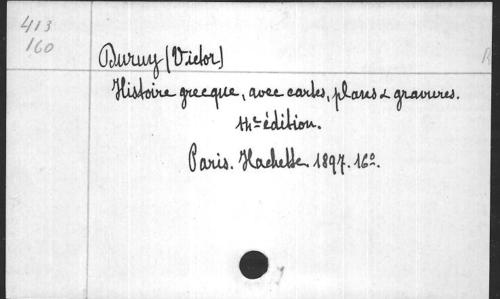 413
160
Duruy (Victor)
Histoire grecque, avec cartes, plans & gravures.
14e édition.
Paris. Hachette. 1897. 16º.